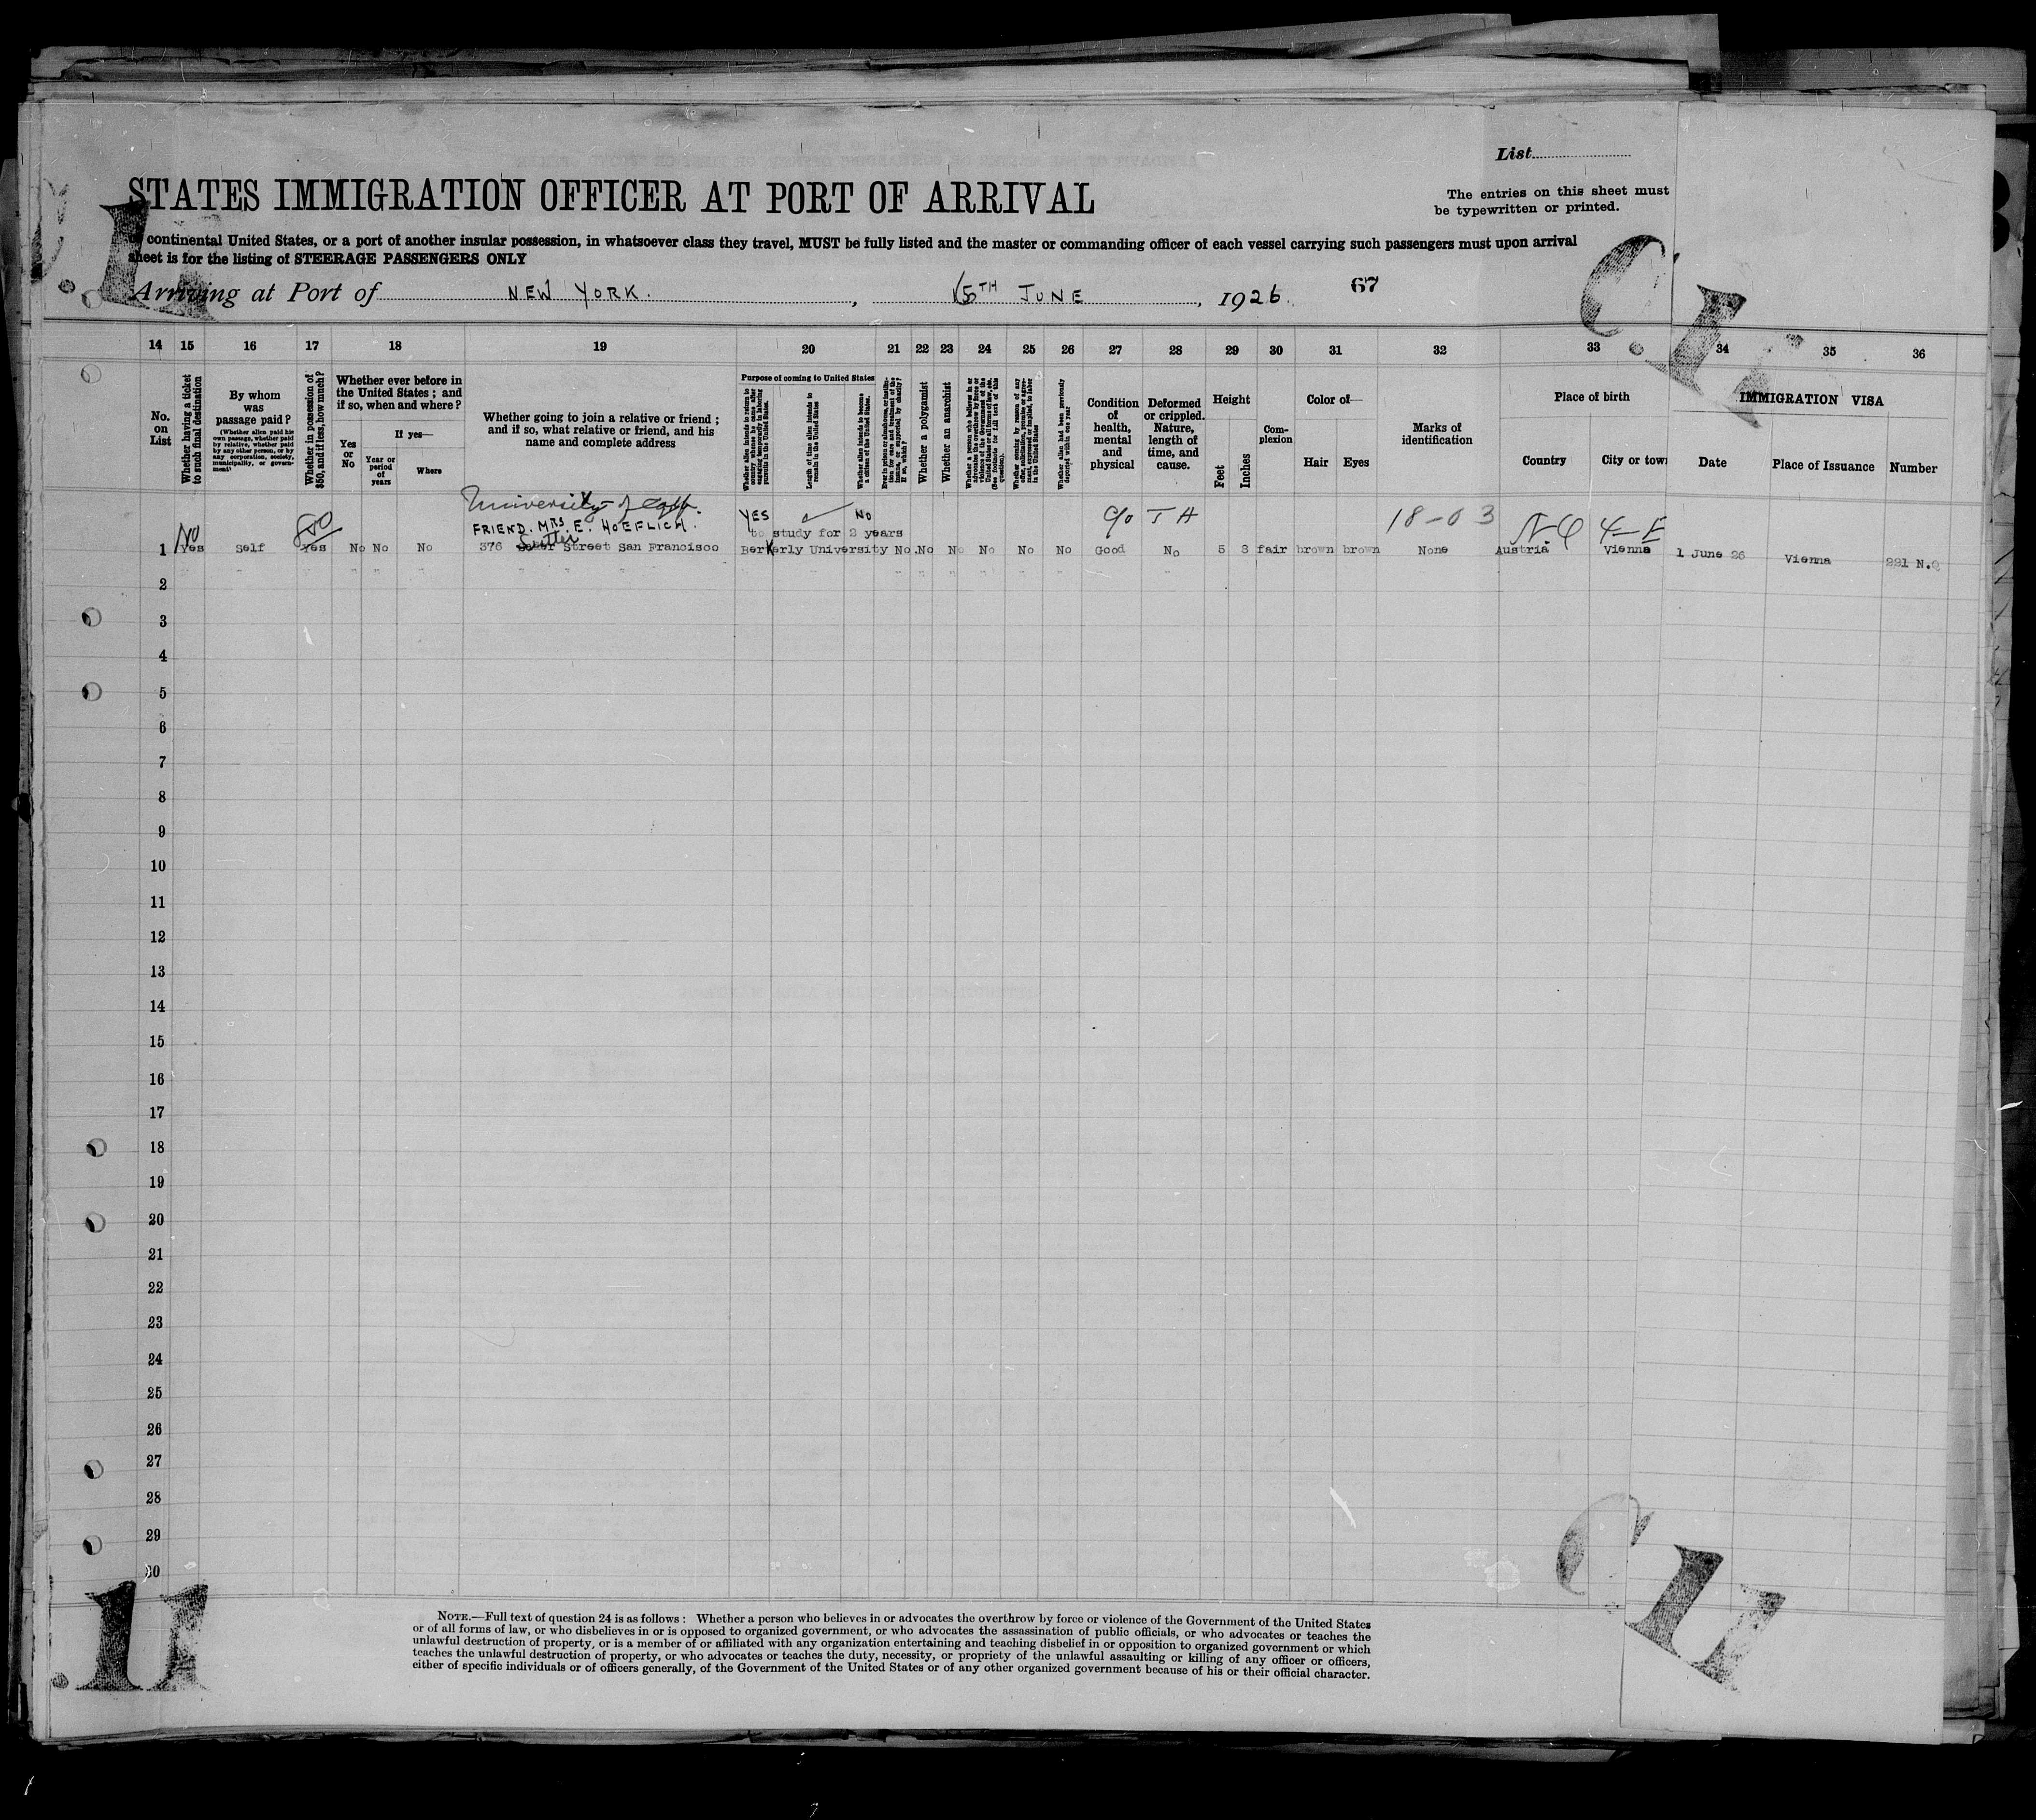 List
STATES IMMIGRATION OFFICER AT PORT OF ARRIVAL
The entries on this sheet must
be typewritten or printed.
continental United States, or a port of another insular possession, in whatsoever class they travel, MUST be fully listed and the master or commanding officer of each vessel carrying such passengers must upon arrival
sheet is for the listing of STEERAGE PASSENGERS ONLY
Arriving at Port of NEW YORK. , 15TH JUNE , 1926. 67
14 15 16 17 18 19 20 21 22 23 24 25 26 27 28 29 30 31 32 33 34 35 36
No. on List
Whether having a ticket to such final destination
By whom was passage paid?
(Whether alien paid his own passage, whether paid by relative, whether paid by any other person, or by any corporation, society, municipality, or government)
Whether in possession of $50, and if less, how much?
Whether ever before in the United States; and if so, when and where?
Yes or No
If yes—
Year or period of years
Where
Whether going to join a relative or friend; and if so, what relative or friend, and his name and complete address
Purpose of coming to United States
Whether alien intends to return to country whence he came after engaging temporarily in laboring pursuits in the United States.
Length of time alien intends to remain in the United States
Whether alien intends to become a citizen of the United States.
Ever in prison or almshouse, or institution for care and treatment of the insane, or supported by charity? If so, which?
Whether a polygamist
Whether an anarchist
Whether a person who believes in or advocates the overthrow by force or violence of the Government of the United States or all forms of law, etc. (See footnote for full text of this question).
Whether coming by reason of any offer, solicitation, promise or agreement, expressed or implied, to labor in the United States
Whether alien had been previously deported within one year
Condition of health, mental and physical
Deformed or crippled. Nature, length of time, and cause.
Height
Feet
Inches
Complexion
Color of—
Hair
Eyes
Marks of identification
Place of birth
Country
City or town
IMMIGRATION VISA
Date
Place of Issuance
Number
University of
FRIEND. MRS E. HOEFLICH. YES NO 90 T A 18-03
No Sutter to study for 2 years
1 Yes Self Yes No No No 376 Street San Francisco Berkerly University No. No No No No No Good No 5 3 fair brown brown None Austria Vienna 1 June 26 Vienna 221 N.Q
2
3
4
5
6
7
8
9
10
11
12
13
14
15
16
17
18
19
20
21
22
23
24
25
26
27
28
29
30
NOTE.—Full text of question 24 is as follows: Whether a person who believes in or advocates the overthrow by force or violence of the Government of the United States
or of all forms of law, or who disbelieves in or is opposed to organized government, or who advocates the assassination of public officials, or who advocates or teaches the
unlawful destruction of property, or is a member of or affiliated with any organization entertaining and teaching disbelief in or opposition to organized government or which
teaches the unlawful destruction of property, or who advocates or teaches the duty, necessity, or propriety of the unlawful assaulting or killing of any officer or officers,
either of specific individuals or of officers generally, of the Government of the United States or of any other organized government because of his or their official character.